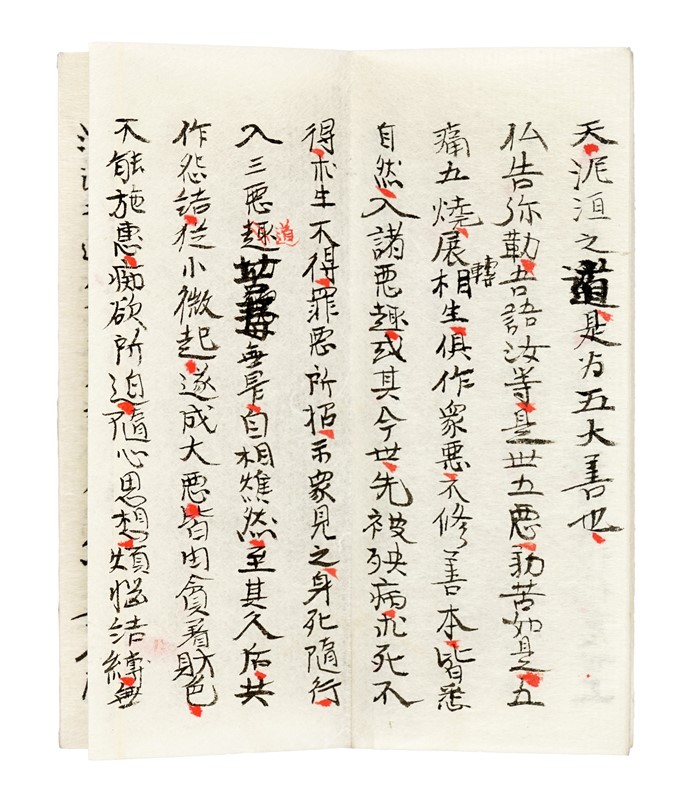 天泥洹之道是为五大善也
仏告弥勒吾語汝等是世五悪勤苦如是五
痛五燒展轉相生俱作衆悪不修善本皆悉
自然入諸悪趣或其今世先被殃病求死不
得求生不得罪悪所招示衆見之身死隨行
入三悪趣道無量自相燋然至其久后共
作怨結從小微起遂成大悪皆由貪着財色
不能施恵痴欲所迫隨心思想煩悩結縛無